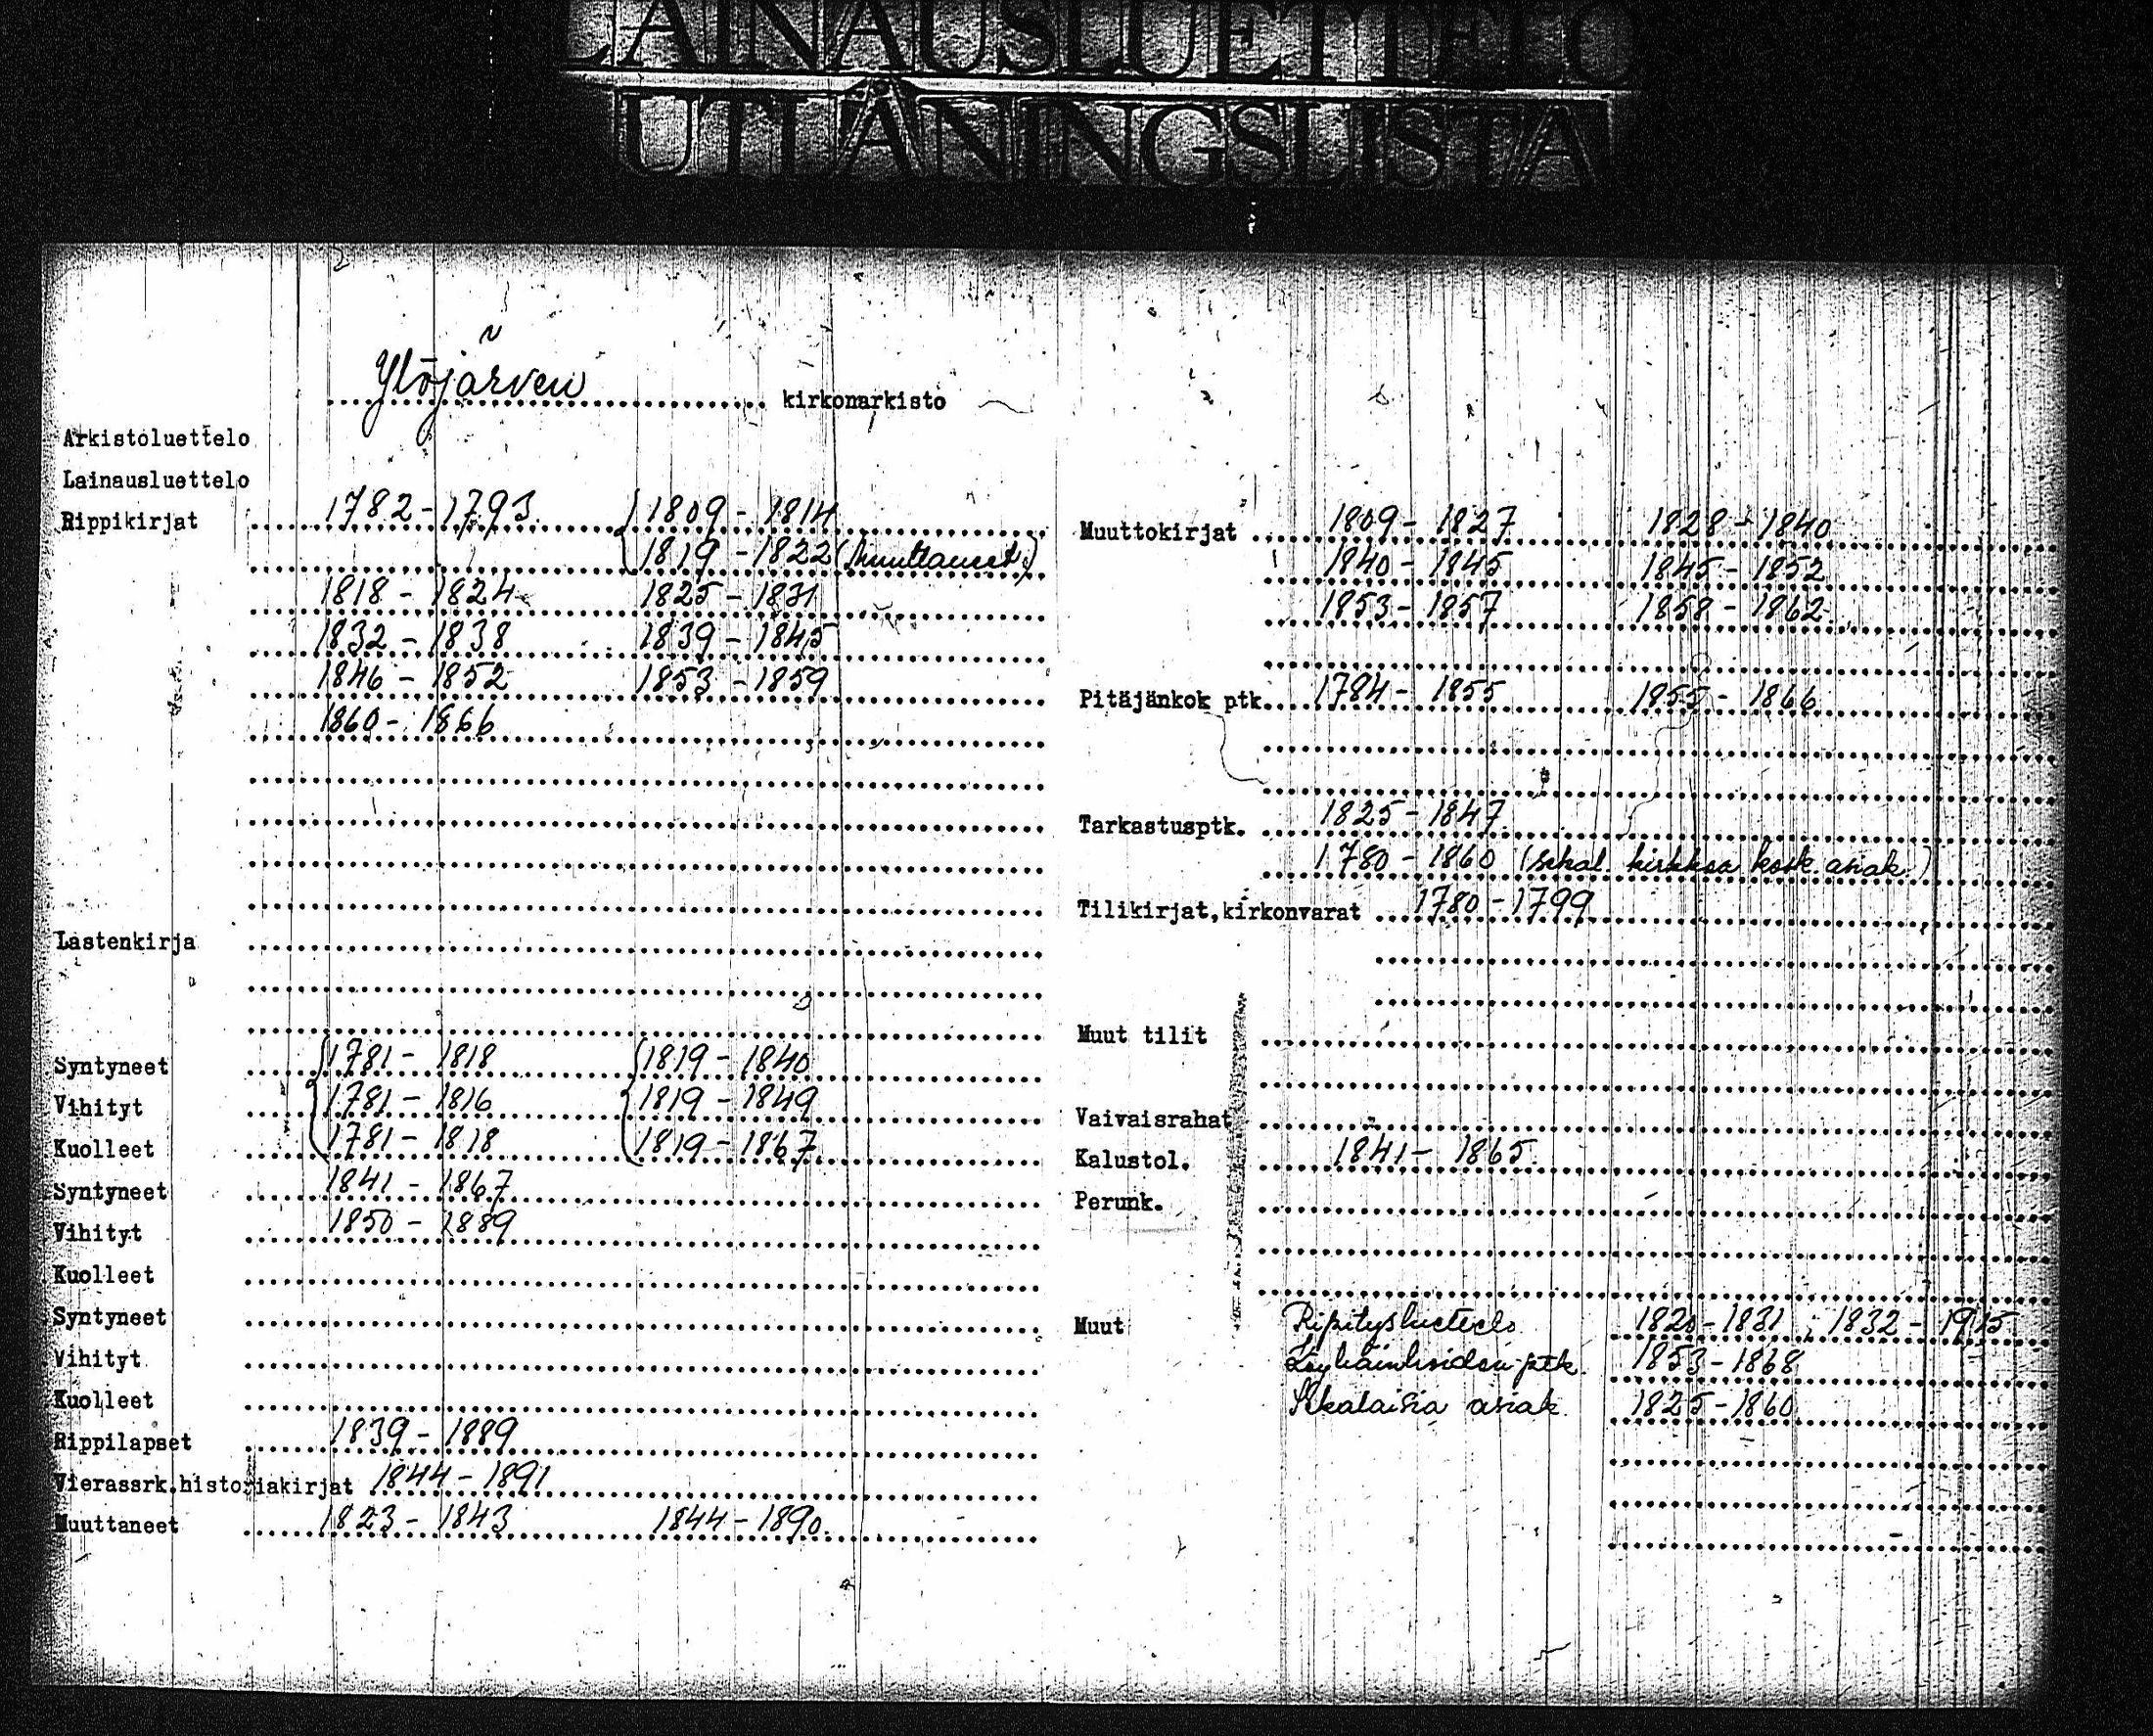 LAINAUSLUETTELO
UTLÅNINGSLISTA
Ylöjärven kirkonarkisto
Arkistoluettelo
Lainausluettelo
Rippikirjat 1782-1793 1809-1814
1819-1822 (muuttaneet)
1818-1824 1825-1831
1832-1838 1839-1845
1846-1852 1853-1859
1860-1866
Lastenkirja
Syntyneet 1781-1818 1819-1840
Vihityt 1781-1816 1819-1849
Kuolleet 1781-1818 1819-1867
Syntyneet 1841-1867
Vihityt 1850-1889
Kuolleet
Syntyneet
Vihityt
Kuolleet
Rippilapset 1839-1889
Vierassrk.historiakirjat 1844-1891
Muuttaneet 1823-1843 1844-1890
Muuttokirjat 1809-1827 1828-1840
1840-1845 1845-1852
1853-1857 1858-1862
Pitäjänkok ptk. 1784-1855 1855-1866
Tarkastusptk. 1825-1847
1780-1860 (sekal. kirkkoa kosk. asiak.)
Tilikirjat,kirkonvarat 1780-1799
Muut tilit
Vaivaisrahat
Kalustol. 1841-1865
Perunk.
Muut Ripitysluettelo 1820-1831; 1832-1915
1853-1868
Sekalaisia asiak. 1825-1860